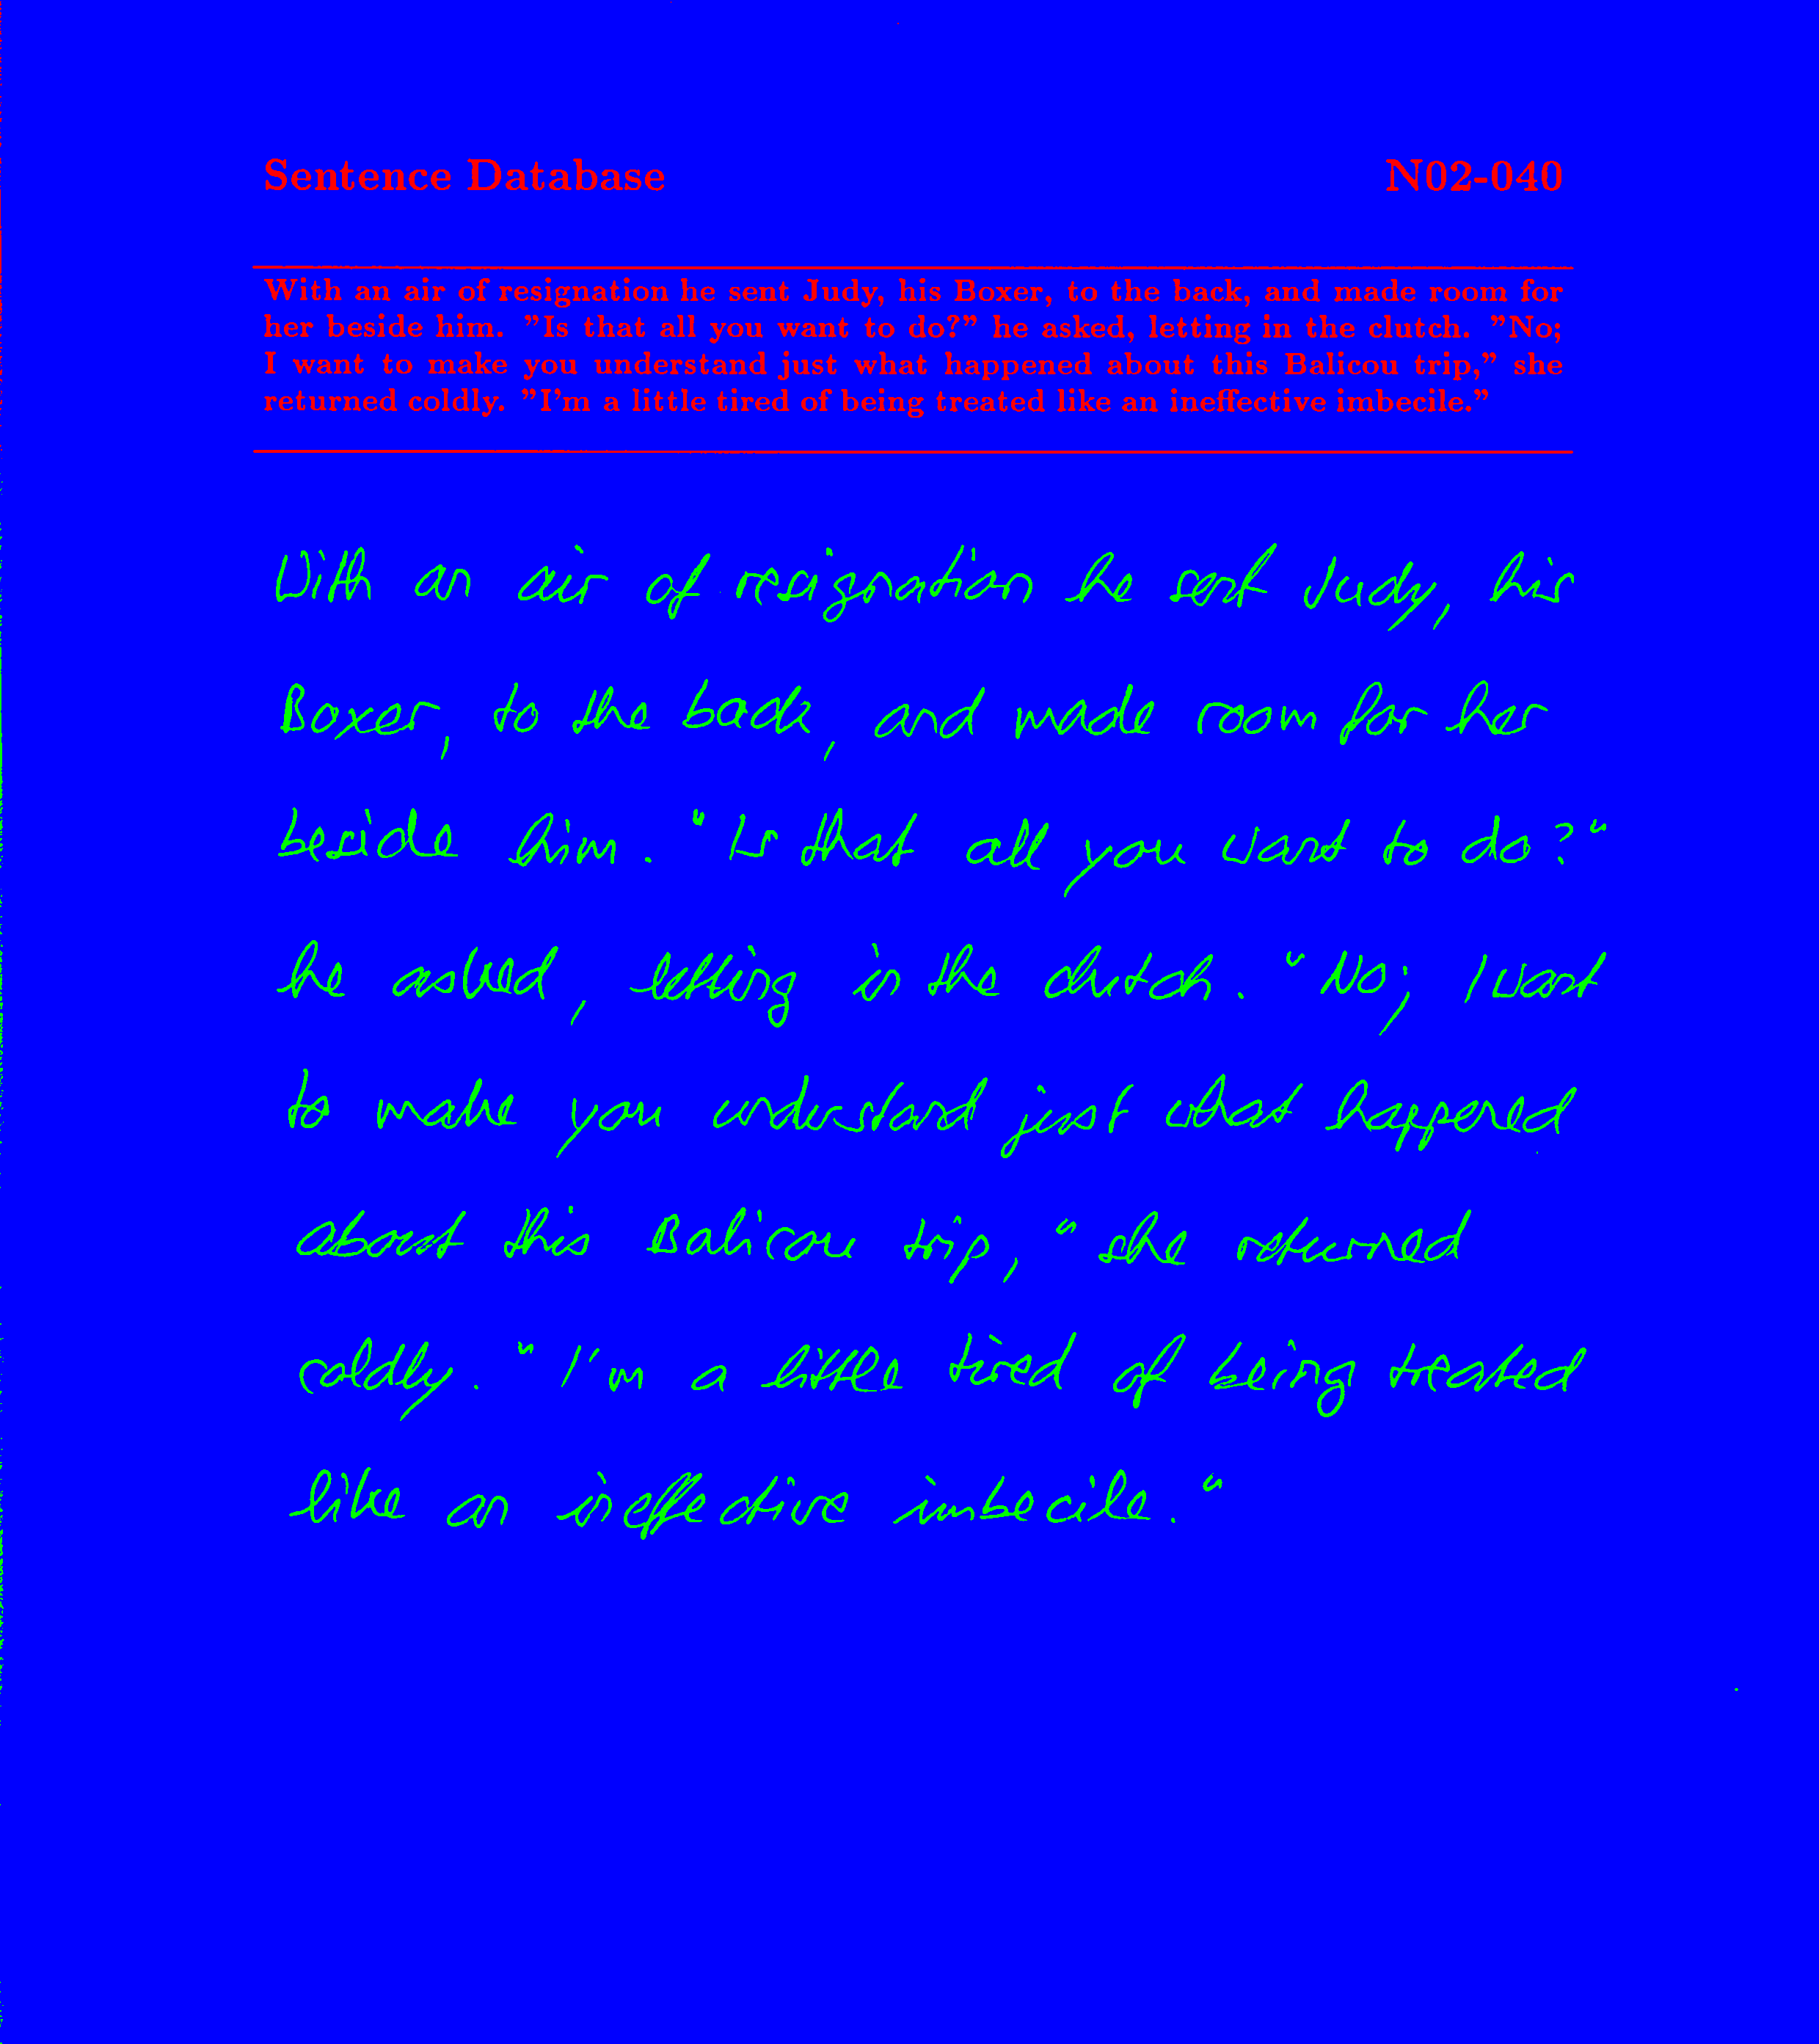 Sentence Database N02-040
With an air of resignation he sent Judy, his Boxer, to the back, and made room for
her beside him. "Is that all you want to do?" he asked, letting in the clutch. "No;
I want to make you understand just what happened about this Balicou trip," she
returned coldly. "I'm a little tired of being treated like an ineffective imbecile."
With an air of resignation he sent Judy, his
Boxer, to the back, and made room for her
beside him. "Is that all you want to do?"
he asked, letting in the clutch. "No; I want
to make you understand just what happened
about this Balicou trip," she returned
coldly. "I'm a little tired of being treated
like an ineffective imbecile."